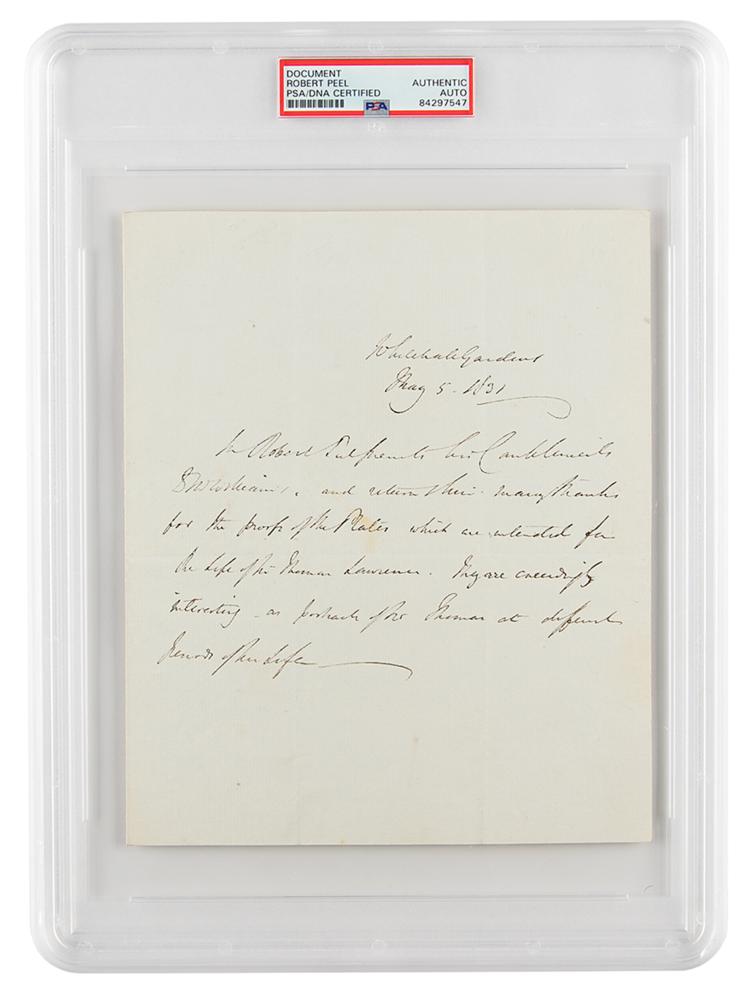 DOCUMENT
ROBERT PEEL
PSA/DNA CERTIFIED
AUTHENTIC
AUTO
84297547
PSA
Whitehall Gardens
May 5 - 1831
Sir Robert Peel presents his Compliments
to Mr Williams, and returns him many thanks
for the proofs of the Plates which are intended for
the Life of Sir Thomas Lawrence. They are exceedingly
interesting - as portraits of Sir Thomas at different
Periods of his Life